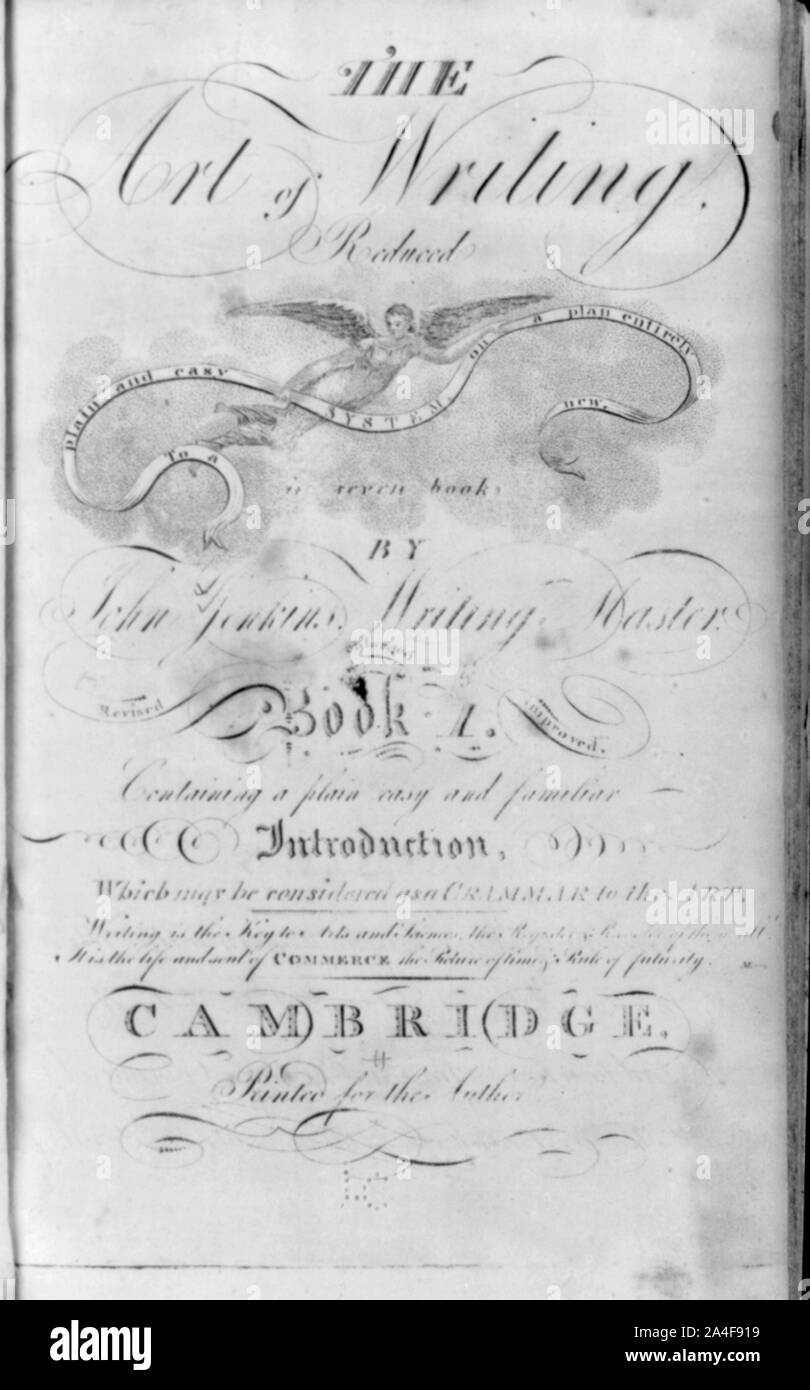 THE
Art of Writing.
Reduced
To a plain and easy SYSTEM, on a plan entirely new,
in seven books
BY
John Jenkins, Writing Master.
Revised Book 1. improved.
Containing a plain easy and familiar
Introduction,
Which may be considered as a GRAMMAR to the ART.
Writing is the Key to Arts and Sciences, the Register &
It is the life and soul of COMMERCE the Picture of time, & Rule of futurity.
CAMBRIDGE,
Printed for the Author
LC
alamy
alamy
Image ID: 2A4F919
www.alamy.com